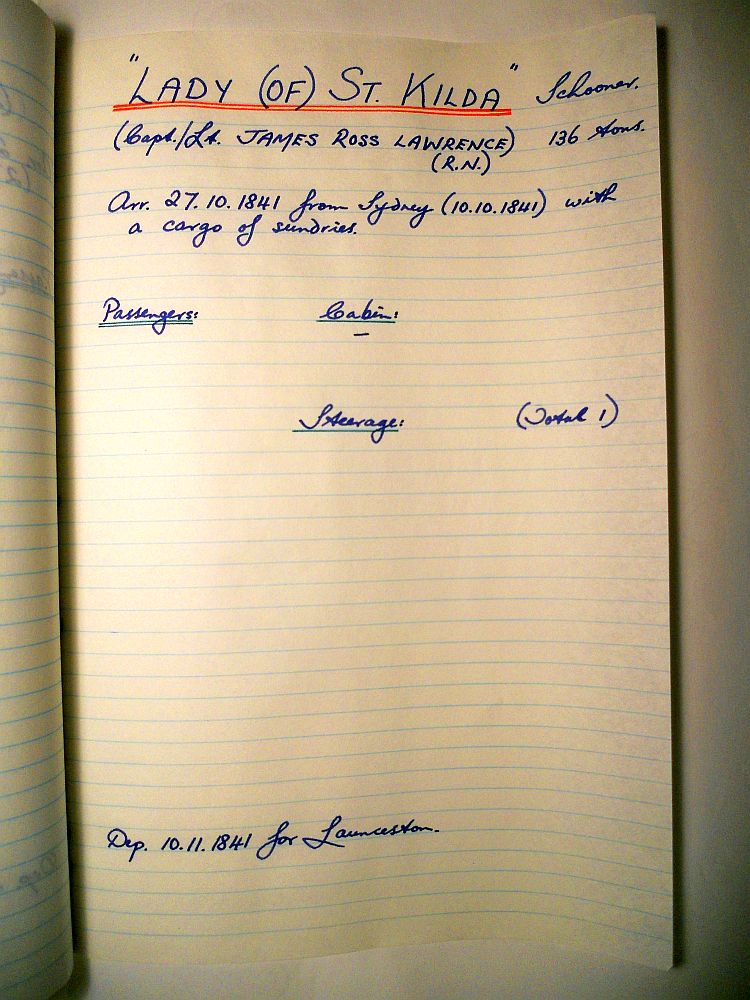 "LADY (OF) ST. KILDA" Schooner.
(Capt./Lt. JAMES ROSS LAWRENCE) 136 tons.
(R.N.)
Arr. 27.10.1841 from Sydney (10.10.1841) with
a cargo of sundries.
Passengers: Cabin:
—
Steerage: (Total 1)
Dep. 10.11.1841 for Launceston.